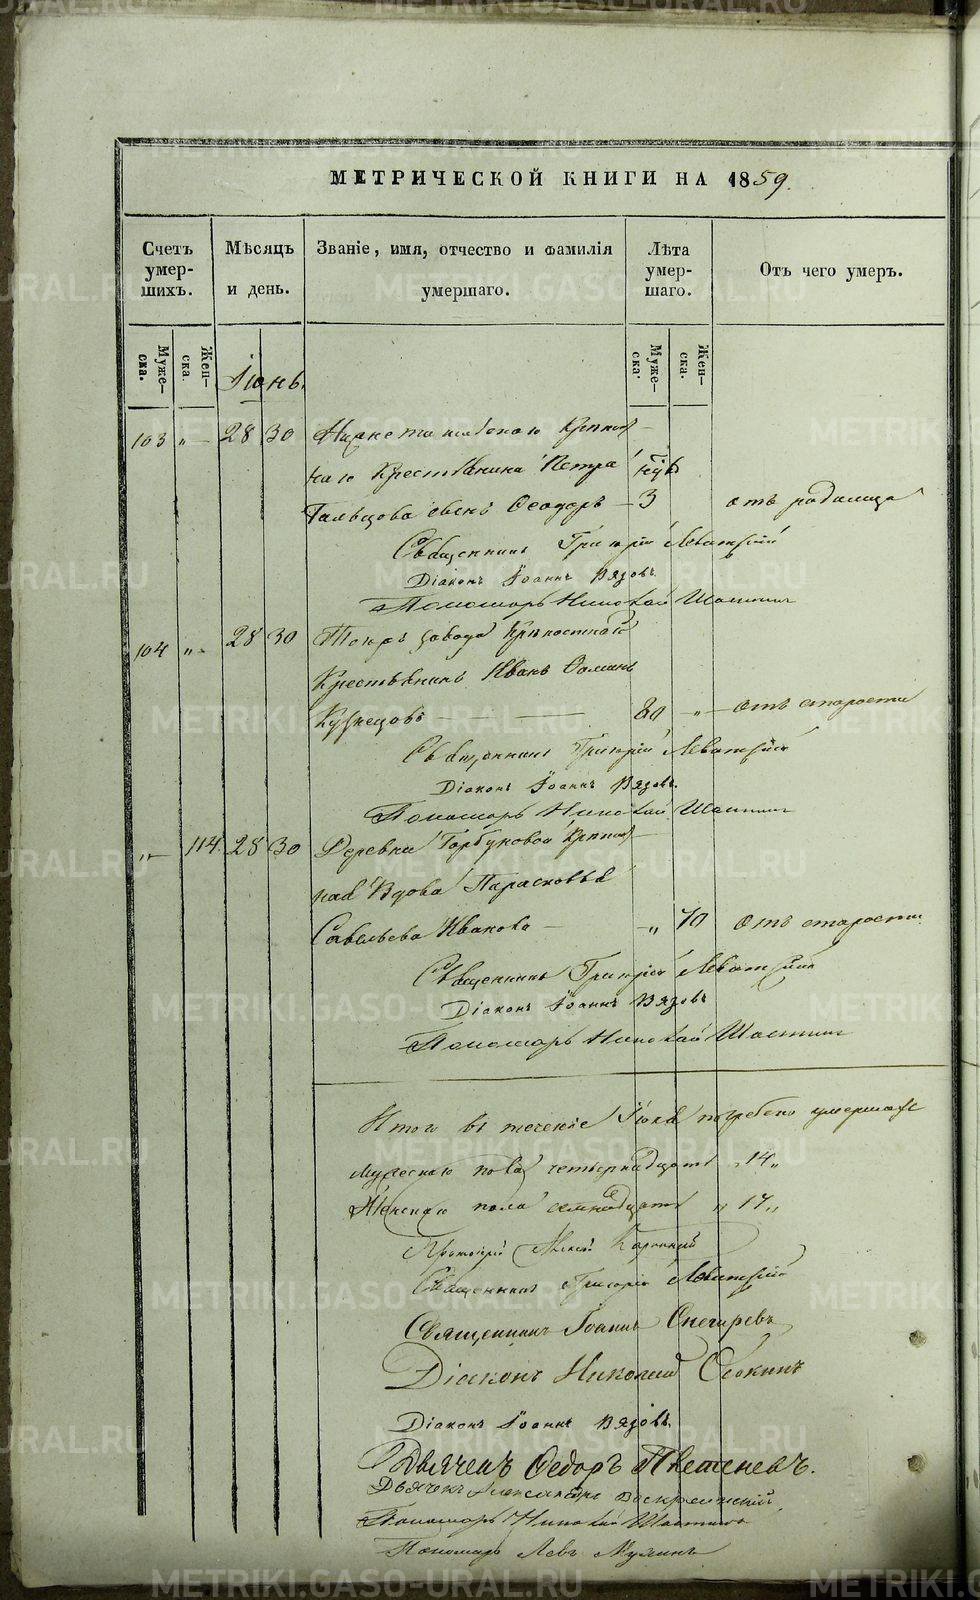 МЕТРИЧЕСКОЙ КНИГИ НА 1859.
Счетъ умер- шихъ.
Мѣсяцъ и день.
Званіе, имя, отчество и фамилія умершаго.
Лѣта умер- шаго.
Отъ чего умеръ.
Муже- ска.
Жен- ска.
Муже- ска.
Жен- ска.
Іюнь.
103 „ 28 30
наго Крестьянина Петра
сынъ Ѳеодоръ 3 отъ родимца
Священникъ Григорій Левитскій
Діаконъ Іоаннъ Вязовъ.
Пономарь Николай
104 „ 28 30 завода Крѣпостной
Крестьянинъ Иванъ
Кузнецовъ 80 „ отъ старости
Священникъ Григорій Левитскій
Діаконъ Іоаннъ Вязовъ.
Пономарь Николай
„ 114. 28 30 Деревни Горбуновой
ная Вдова Парасковья
Савельева Иванова „ 70 отъ старости
Священникъ Григорій Левитскій
Діаконъ Іоаннъ Вязовъ
Пономарь Николай
Итого въ теченіе Іюня погребено умершихъ
мужескаго пола четырнадцать „14„
Женскаго пола семнадцать „17„
Протоіерей
Священникъ Григорій Левитскій
Священникъ Іоаннъ Снегиревъ
Діаконъ Николай Осокинъ
Діаконъ Іоаннъ Вязовъ.
Дьячекъ Ѳедоръ
Дьячекъ Александръ Воскресенскій
Пономарь Николай
Пономарь Левъ
METRIKI.GASO-URAL.RU